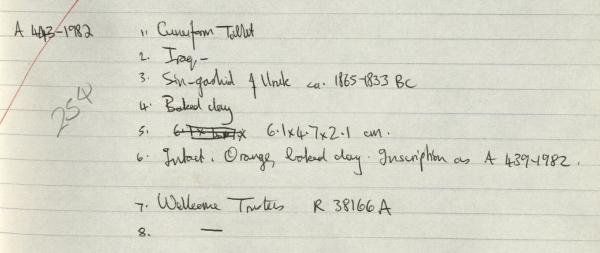 A 443-1982
1. Cuneiform Tablet
2. Iraq -
3. Sin-gashid of Uruk ca. 1865-1833 BC
254
4. Baked clay
5. 6.1x4.7x2.1 cm.
6. Intact. Orange, baked clay. Inscription as A 439-1982.
7. Wellcome Trustees R 38166A
8. —